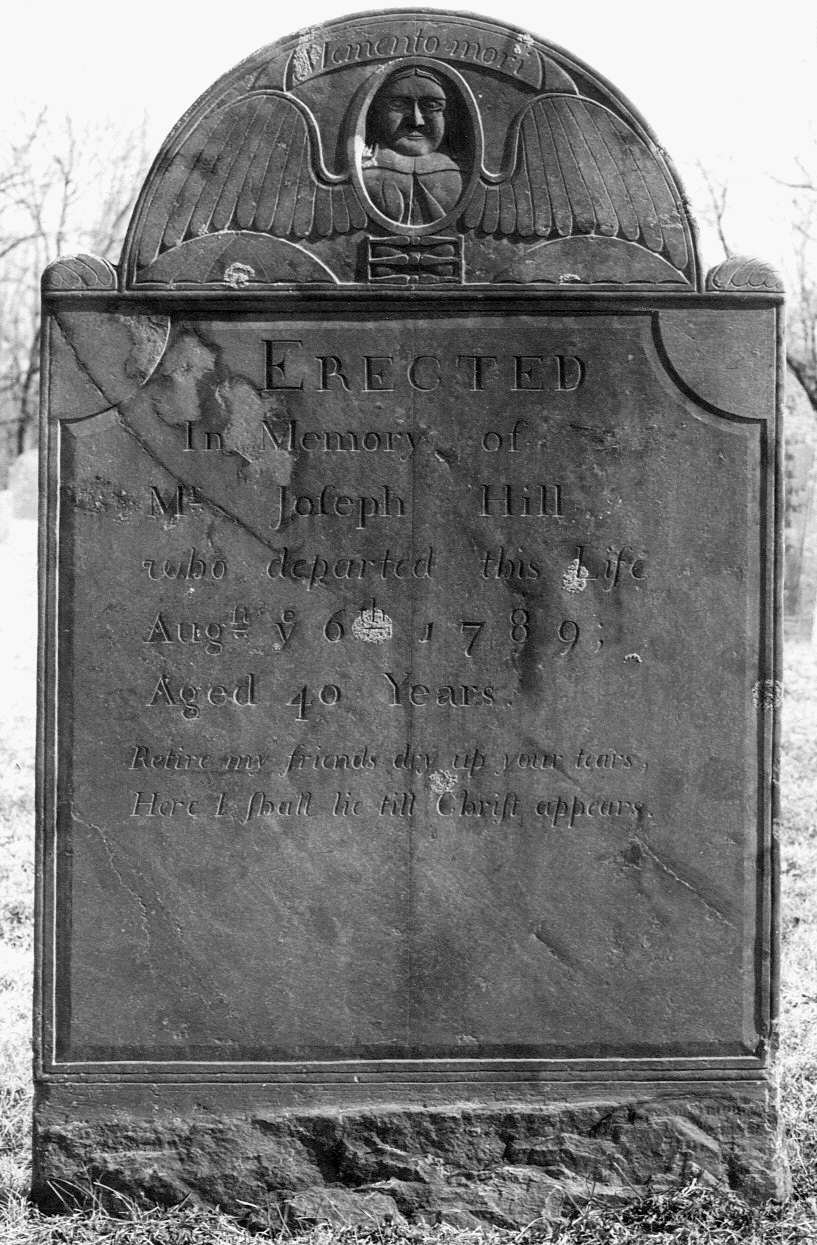 Memento mori
ERECTED
In Memory of
Mr. Joſeph Hill
who departed this Life
Augſt. ye 6th 1789;
Aged 40 Years.
Retire my friends dry up your tears,
Here I ſhall lie till Chriſt appears.